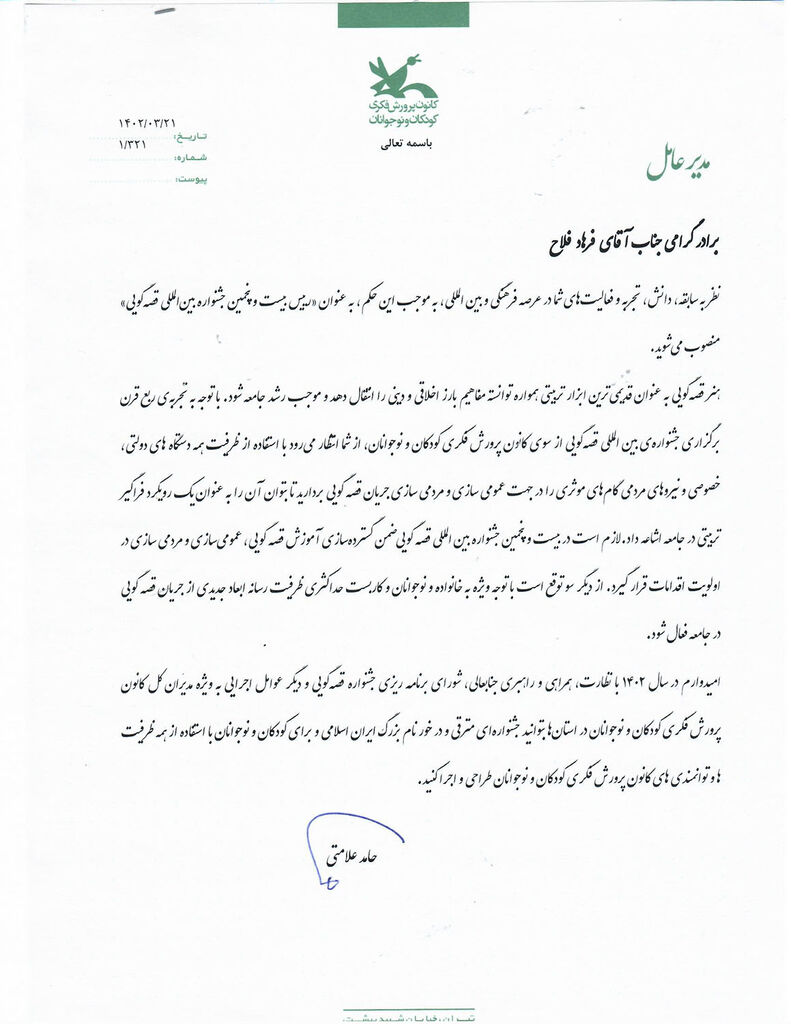 کانون پرورش فکری
کودکان و نوجوانان
باسمه تعالی
تاریخ: ۱۴۰۲/۰۳/۲۱
شماره: ۱/۳۲۱
پیوست:
مدیر عامل
برادر گرامی جناب آقای فرهاد فلاح
نظر به سابقه، دانش، تجربه و فعالیت‌های شما در عرصه فرهنگی و بین المللی، به موجب این حکم، به عنوان «رییس بیست و پنجمین جشنواره بین‌المللی قصه‌گویی»
منصوب می‌شوید.
هنر قصه‌گویی به عنوان قدیمی‌ترین ابزار تربیتی همواره توانسته مفاهیم بارز اخلاقی و دینی را انتقال دهد و موجب رشد جامعه شود. با توجه به تجربه‌ی ربع قرن
برگزاری جشنواره‌ی بین المللی قصه‌گویی از سوی کانون پرورش فکری کودکان و نوجوانان، از شما انتظار می‌رود با استفاده از ظرفیت همه دستگاه های دولتی،
خصوصی و نیروهای مردمی گام های موثری را در جهت عمومی سازی و مردمی سازی جریان قصه گویی بردارید تا بتوان آن را به عنوان یک رویکرد فراگیر
تربیتی در جامعه اشاعه داد. لازم است در بیست و پنجمین جشنواره بین المللی قصه گویی ضمن گسترده‌سازی آموزش قصه گویی، عمومی‌سازی و مردمی سازی در
اولویت اقدامات قرار گیرد. از دیگر سو توقع است با توجه ویژه به خانواده و نوجوانان و کاربست حداکثری ظرفیت رسانه ابعاد جدیدی از جریان قصه گویی
در جامعه فعال شود.
امیدوارم در سال ۱۴۰۲ با نظارت، همراهی و راهبری جنابعالی، شورای برنامه ریزی جشنواره قصه‌گویی و دیگر عوامل اجرایی به ویژه مدیران کل کانون
پرورش فکری کودکان و نوجوانان در استان‌ها بتوانید جشنواره‌ای مترقی و در خور نام بزرگ ایران اسلامی و برای کودکان و نوجوانان با استفاده از همه ظرفیت
ها و توانمندی های کانون پرورش فکری کودکان و نوجوانان طراحی و اجرا کنید.
حامد علامتی
تهران، خیابان شهید بهشتی